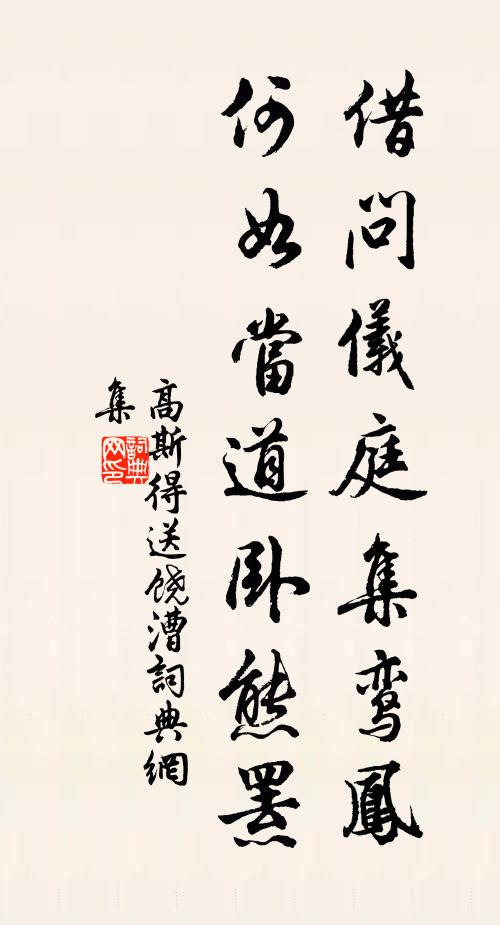 借問儀庭集鸾鳳
何如當道卧熊羆
高斯得送饶漕詞典網
集
詞典網